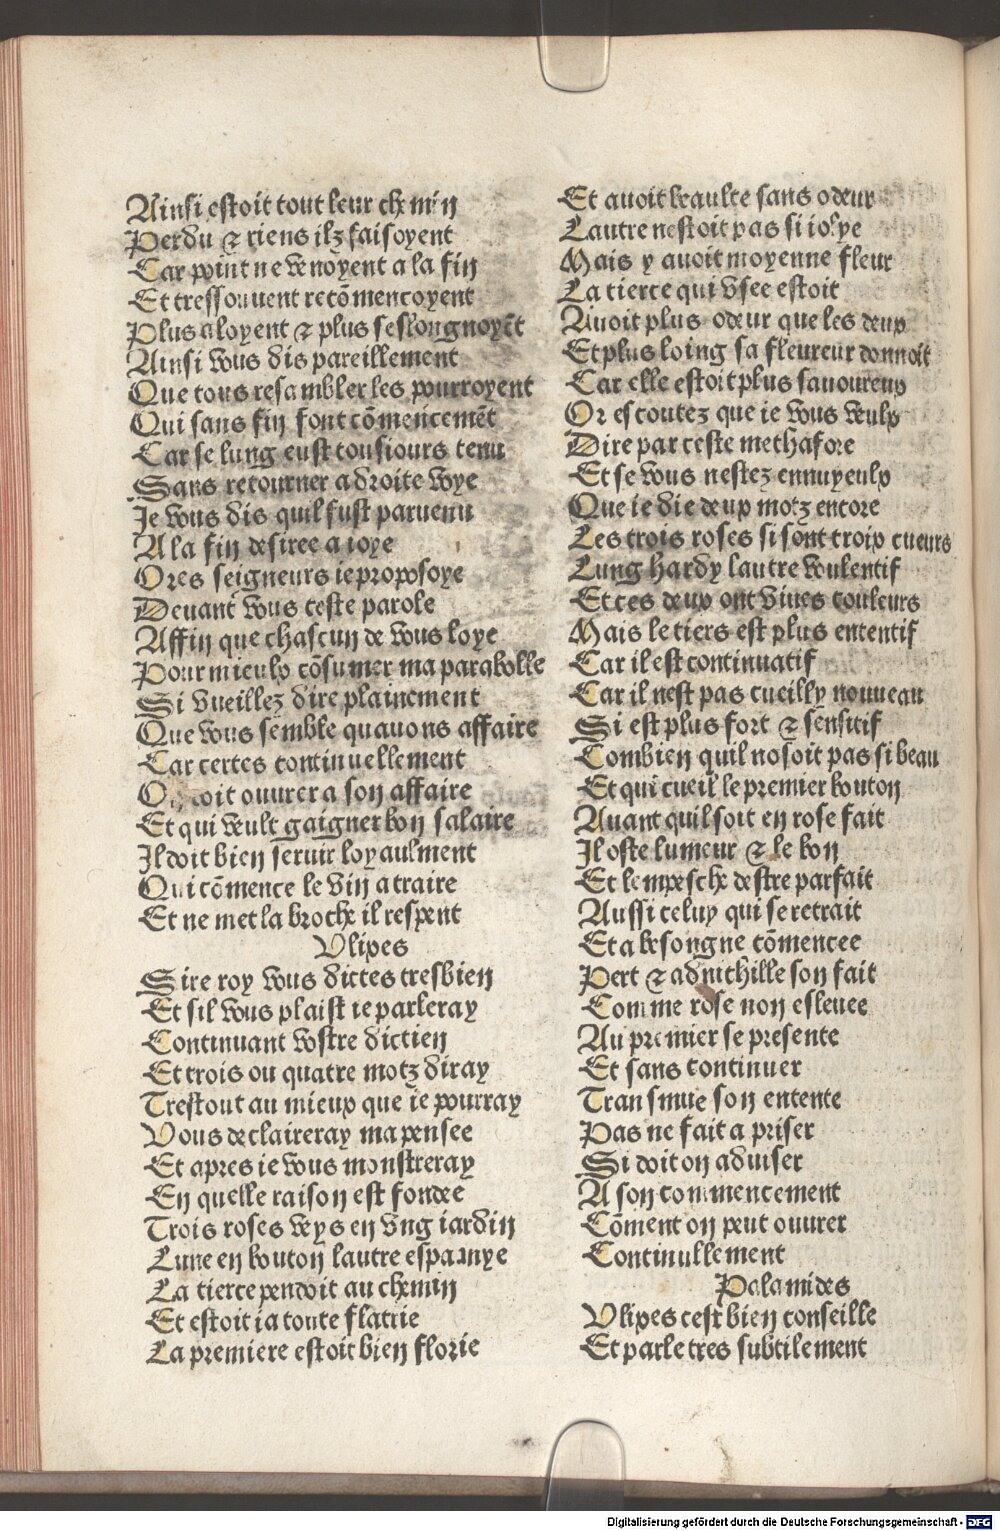 Ainsi estoit tout leur chemin
Perdu & riens ilz faisoyent
Car point ne venoyent a la fin
Et tressouuent recōmencoyent
Plus aloyent & plus seslongnoyēt
Ainsi vous dis pareillement
Que tous resambler les pourroyent
Qui sans fin font cōmencemēt
Car se lung eust tousiours tenu
Sans retourner a droite voye
Je vous dis quil fust paruenu
A la fin desiree a ioye
Ores seigneurs ie proposoye
Deuant vous ceste parole
Affin que chascun de vous loye
Pour mieulx cōsumer ma parabolle
Si vueillez dire plainement
Que vous semble quauons affaire
Car certes continuellement
On doit ouurer a son affaire
Et qui veult gaigner bon salaire
Il doit bien seruir loyaulment
Qui cōmence le vin a traire
Et ne met la broche il respent
Vlixes
Sire roy vous dictes tresbien
Et sil vous plaist ie parleray
Continuant vostre dictien
Et trois ou quatre motz diray
Trestout au mieux que ie pourray
Vous declaireray ma pensee
Et apres ie vous monstreray
En quelle raison est fondee
Trois roses veys en vng iardin
Lune en bouton lautre espannye
La tierce pendoit au chemin
Et estoit ia toute flatrie
La premiere estoit bien florie
Et auoit beaulte sans odeur
Lautre nestoit pas si iolye
Mais y auoit moyenne fleur
La tierce qui vsee estoit
Auoit plus odeur que les deux
Et plus loing sa fleureur donnoit
Car elle estoit plus sauoureux
Or escoutez que ie vous veulx
Dire par ceste methafore
Et se vous nestez ennuyeulx
Que ie die deux motz encore
Les trois roses si sont troix cueurs
Lung hardy lautre voulentif
Et ces deux ont viues couleurs
Mais le tiers est plus ententif
Car il est continuatif
Car il nest pas cueilly nouueau
Si est plus fort & sensitif
Combien quil nosoit pas si beau
Et qui cueil le premier bouton
Auant quil soit en rose fait
Il oste lumeur & le bon
Et lempesche destre parfait
Aussi celuy qui se retrait
Et a besongne cōmencee
Pert & adnichille son fait
Comme rose non esleuee
Au premier se presente
Et sans continuer
Transmue son entente
Pas ne fait a priser
Si doit on aduiser
A son commencement
Cōment on peut ouurer
Continullement
Palamides
Vlixes cest bien conseille
Et parle tres subtilement
Digitalisierung gefördert durch die Deutsche Forschungsgemeinschaft - DFG